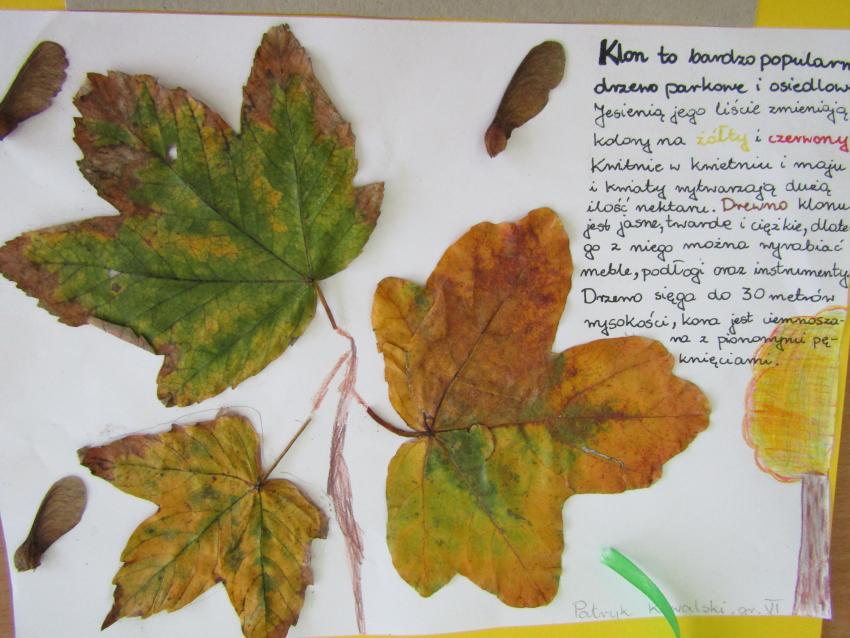 Klon to bardzo popularn
drzewo parkowe i osiedlow
Jesienią jego liście zmieniają
kolory na żółty i czerwony
Kwitnie w kwietniu i maju
i kwiaty wytwarzają dużą
ilość nektaru. Drewno klonu
jest jasne, twarde i ciężkie, dlate
go z niego można wyrabiać
meble, podłogi oraz instrumenty
Drzewo sięga do 30 metrów
wysokości, kora jest ciemnosza-
ra z pionowymi pę-
knięciami.
Patryk Kowalski, gr. VI